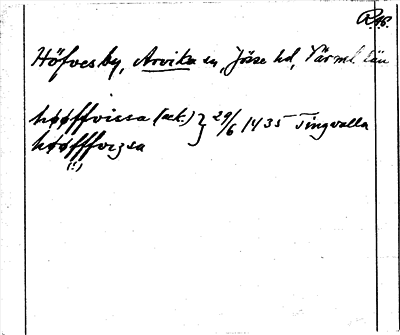 R. 18.
Höfvesby, Arvika sn, Jösse hd, Värml. län
høøffvissa (ack.) } 29/6 1435 Tingvalla
høøfffvizsa
(!)